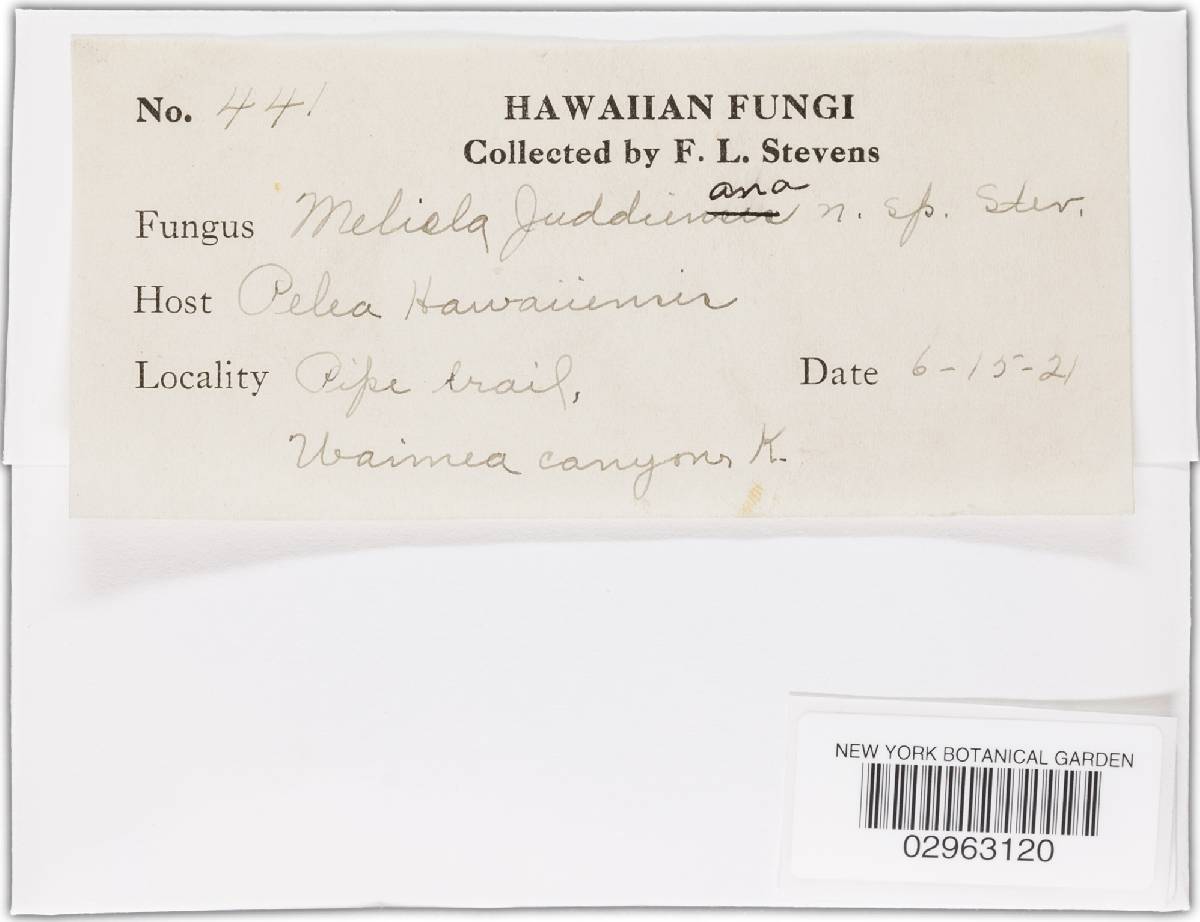 No. 441
HAWAIIAN FUNGI
Collected by F. L. Stevens
ana
Fungus Meliola Juddi n. sp. Stev.
Host Pelea Hawaiiensis
Locality Pipe trail,
Date 6-15-21
Waimea canyon, K.
NEW YORK BOTANICAL GARDEN
02963120